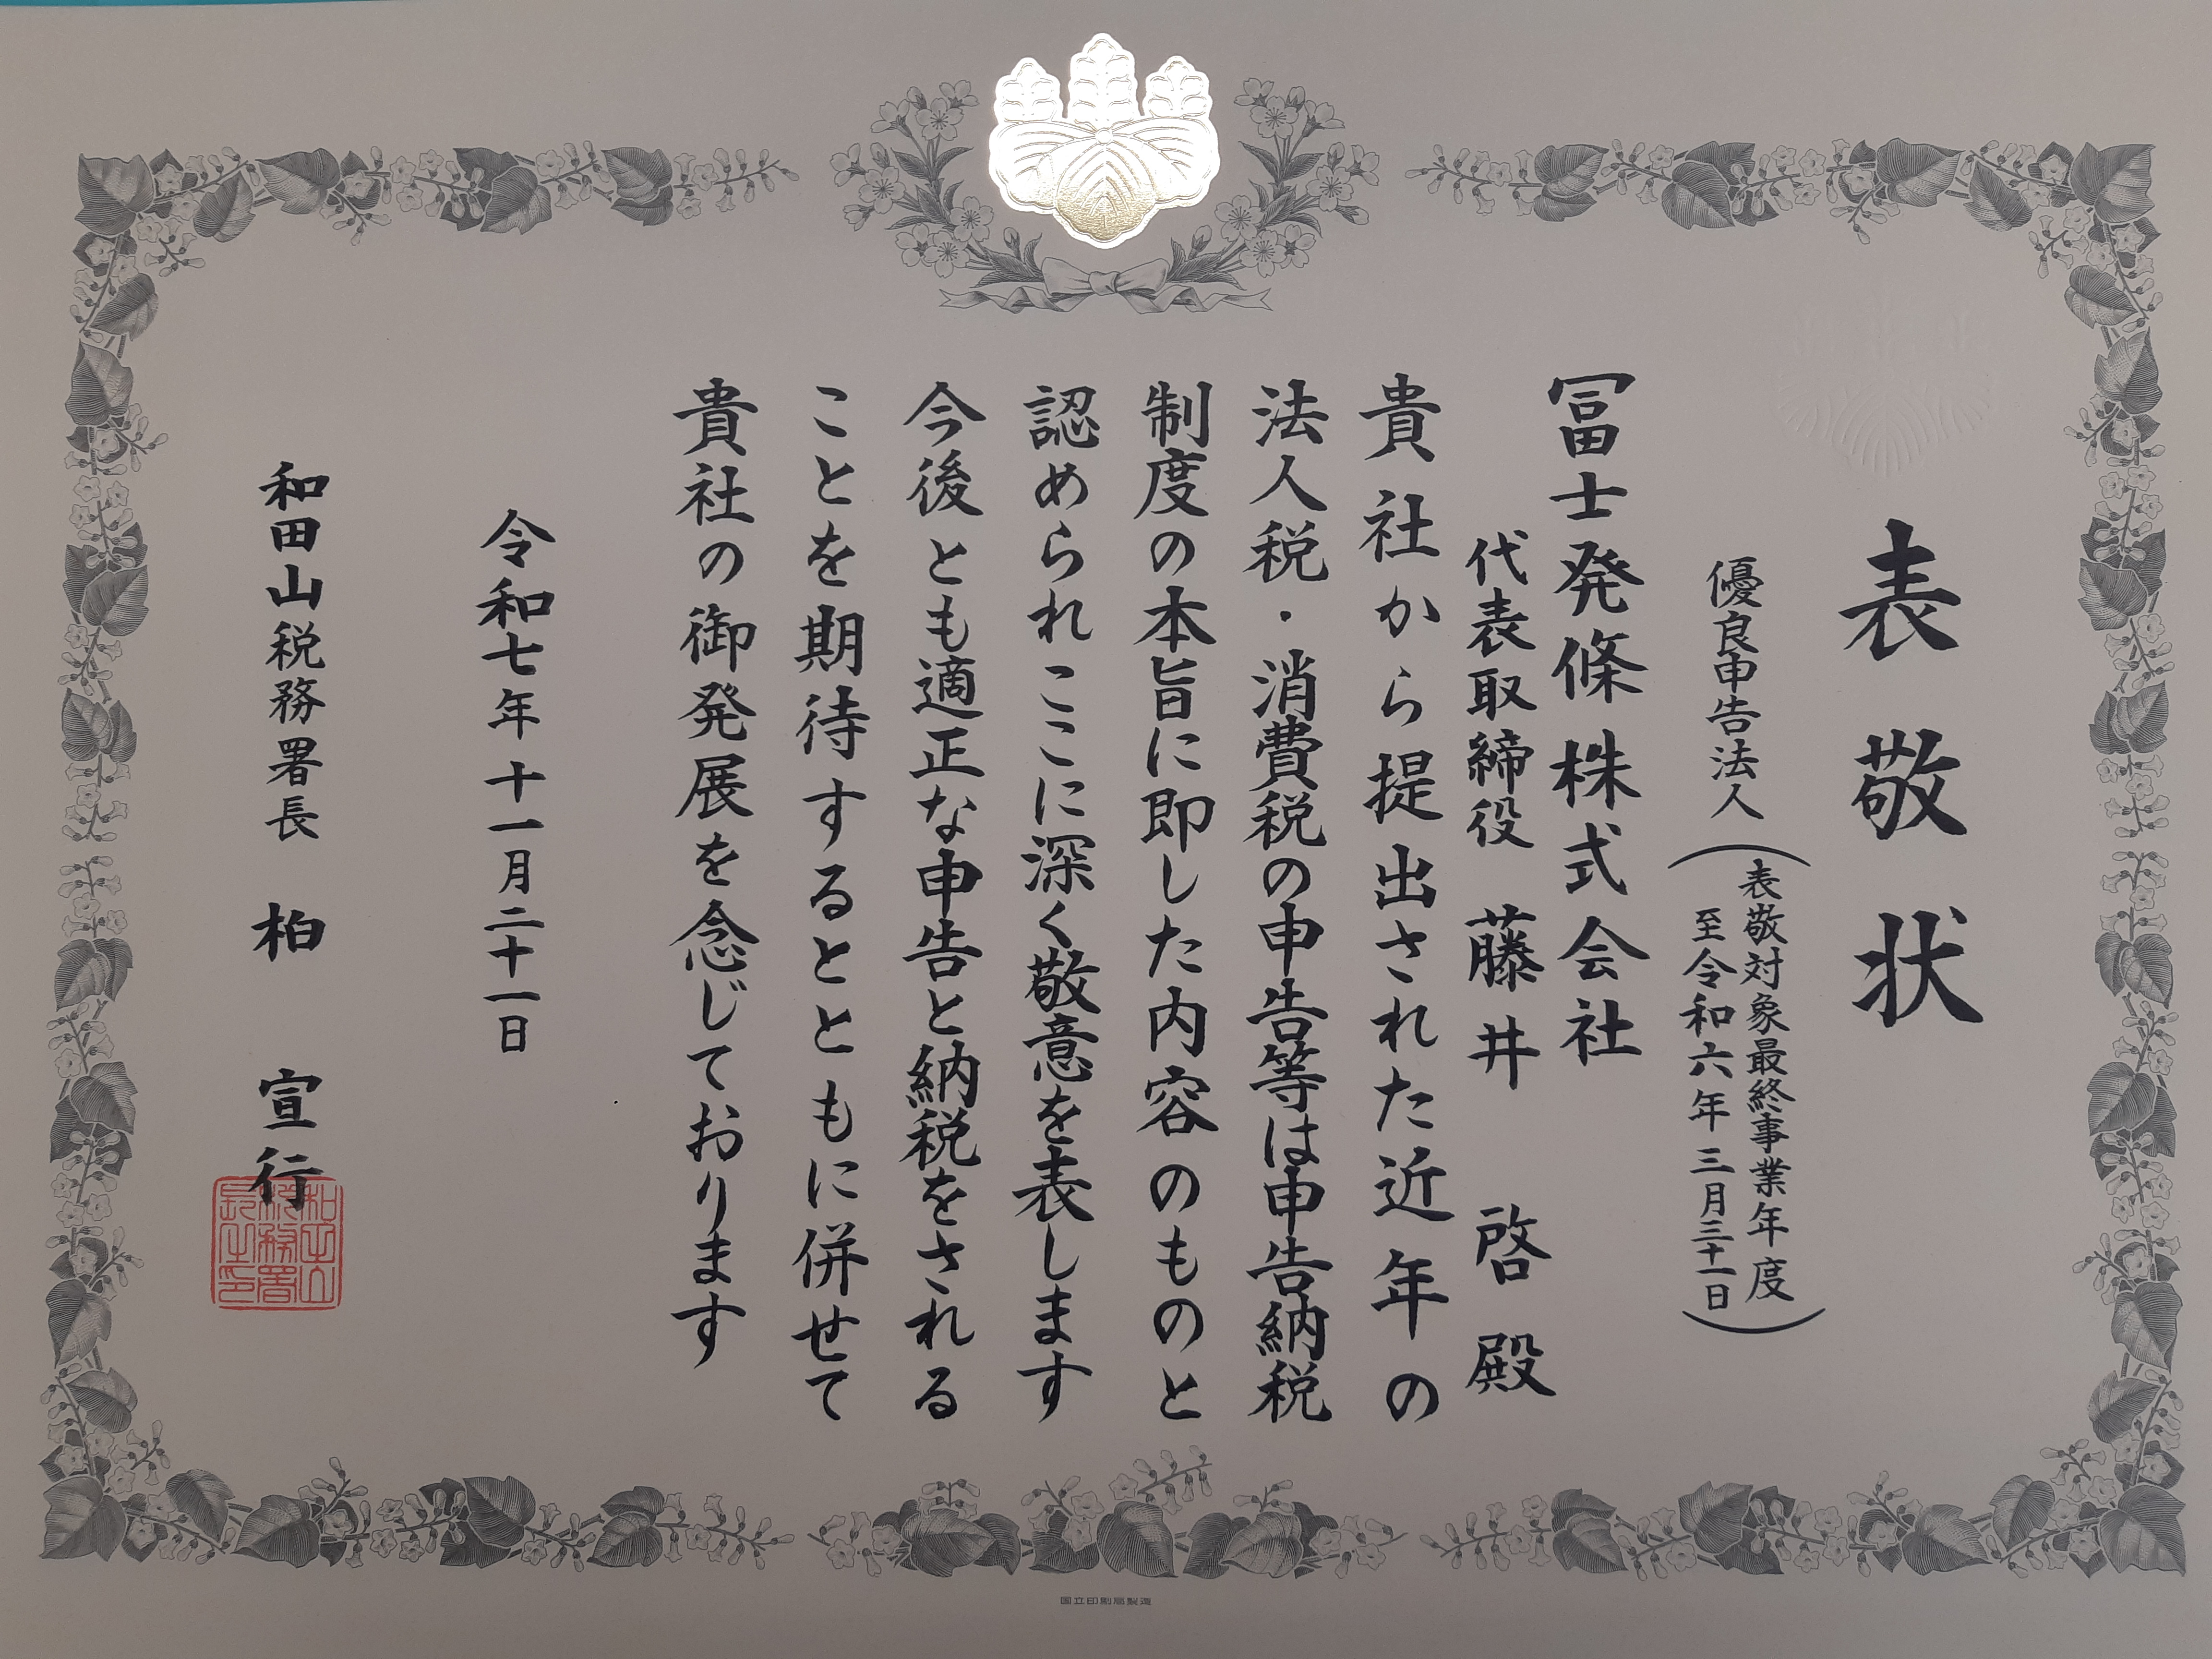 表敬状
優良申告法人
表敬対象最終事業年度
至令和六年三月三十一日
冨士発條株式会社
代表取締役 藤井 啓 殿
貴社から提出された近年の
法人税・消費税の申告等は申告納税
制度の本旨に即した内容のものと
認められここに深く敬意を表します
今後とも適正な申告と納税をされる
ことを期待するとともに併せて
貴社の御発展を念じております
令和七年十一月二十一日
和田山税務署長 柏 宣行
和田山税務署長之印
国立印刷局製造